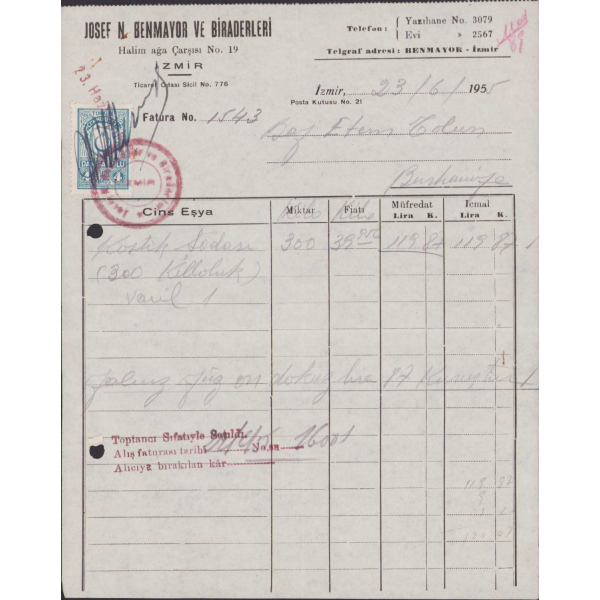 JOSEF N. BENMAYOR VE BİRADERLERİ
Halim ağa Çarşısı No. 19
İZMİR
Ticaret Odası Sicil No. 776
Telefon: { Yazıhane No. 3079
Evi » 2567
Telgraf adresi: BENMAYOR - İzmir
İzmir, 23/6/1955
Posta Kutusu No. 21
Fatura No. 1543
Bay Etem
Burhaniye
Cins Eşya Miktar Fiatı Müfredat İcmal
Lira K. Lira K.
Kilo Kilo
Kostik Sodası 300 39 950 119 87 119 87
(300 Killoluk)
varil 1
Yalnız Yüz on dokuz lira 87 Kuruştur
Toptancı Sıfatiyle Satıldı.
Alış faturası tarihi No. su
Alıcıya bırakılan kâr
119 87